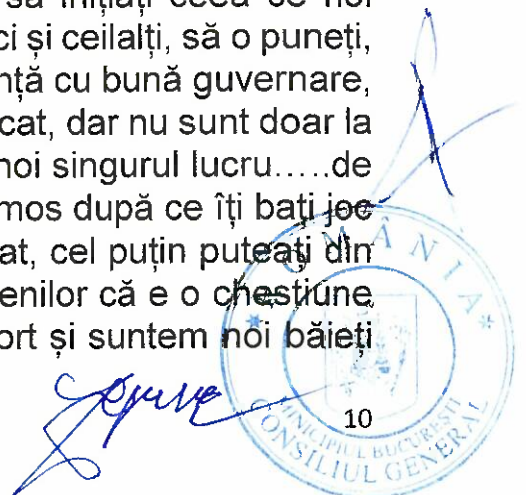 să inițiați ceea ce noi
ci și ceilalți, să o puneți,
ență cu bună guvernare,
cat, dar nu sunt doar la
noi singurul lucru.....de
mos după ce îți bați joc
at, cel puțin puteați din
enilor că e o chestiune
ort și suntem noi băieți
10
ROMÂNIA
MUNICIPIUL BUCUREȘTI
CONSILIUL GENERAL